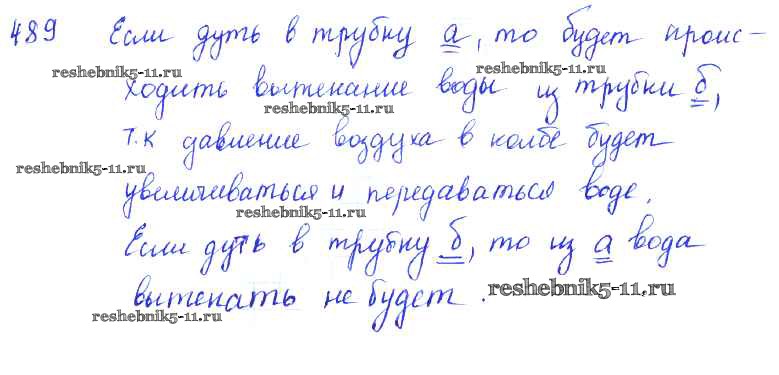 489 Если дуть в трубку а, то будет проис-
reshebnik5-11.ru reshebnik5-11.ru
ходить вытекание воды из трубки б,
reshebnik5-11.ru
т.к давление воздуха в колбе будет
reshebnik5-11.ru
увеличиваться и передаваться воде.
reshebnik5-11.ru
Если дуть в трубку б, то из а вода
вытекать не будет.
reshebnik5-11.ru
reshebnik5-11.ru